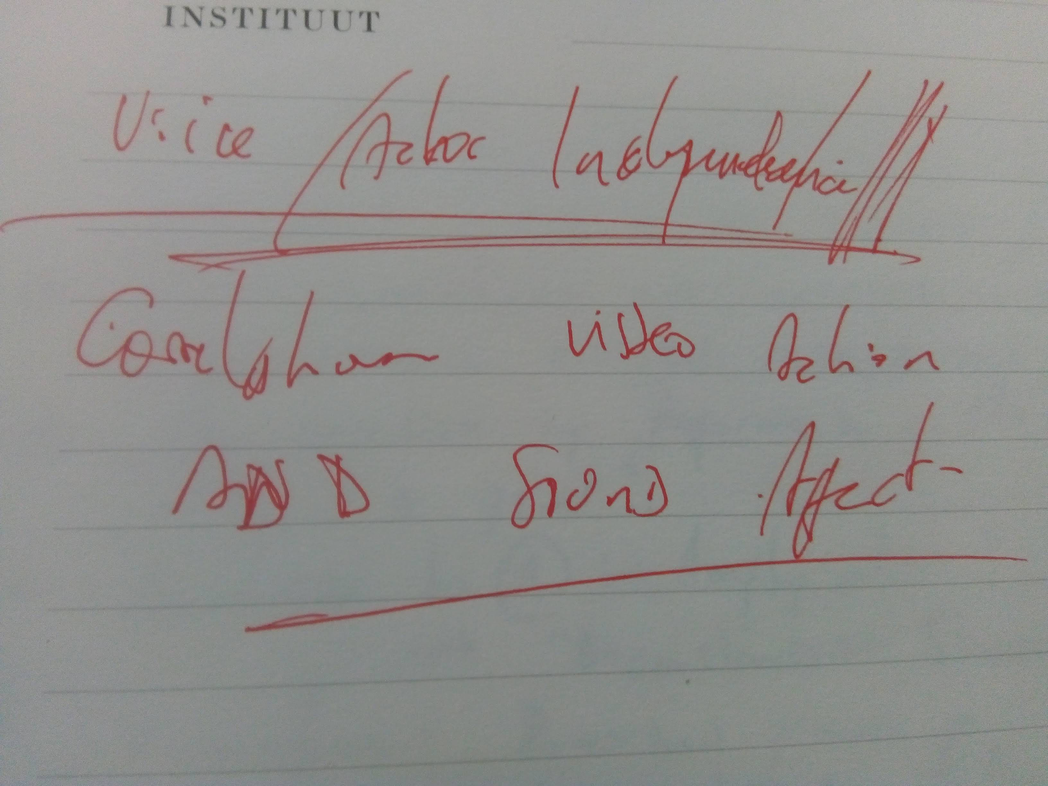 INSTITUUT
Voice / Actor Independence
Correlation video Action
AND Sound Affect